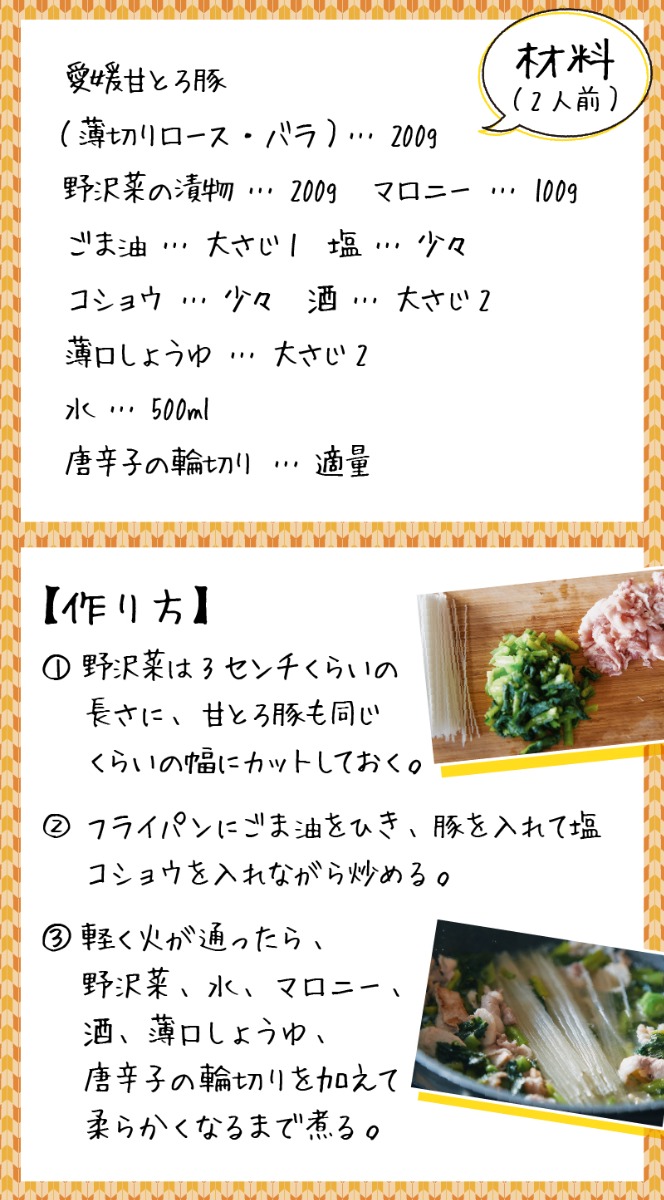 材料
(2人前)
愛媛甘とろ豚
(薄切りロース・バラ)… 200g
野沢菜の漬物 … 200g マロニー … 100g
ごま油 … 大さじ1 塩 … 少々
コショウ … 少々 酒 … 大さじ2
薄口しょうゆ … 大さじ2
水 … 500ml
唐辛子の輪切り … 適量
【作り方】
① 野沢菜は3センチくらいの
長さに、甘とろ豚も同じ
くらいの幅にカットしておく。
② フライパンにごま油をひき、豚を入れて塩
コショウを入れながら炒める。
③ 軽く火が通ったら、
野沢菜、水、マロニー、
酒、薄口しょうゆ、
唐辛子の輪切りを加えて
柔らかくなるまで煮る。